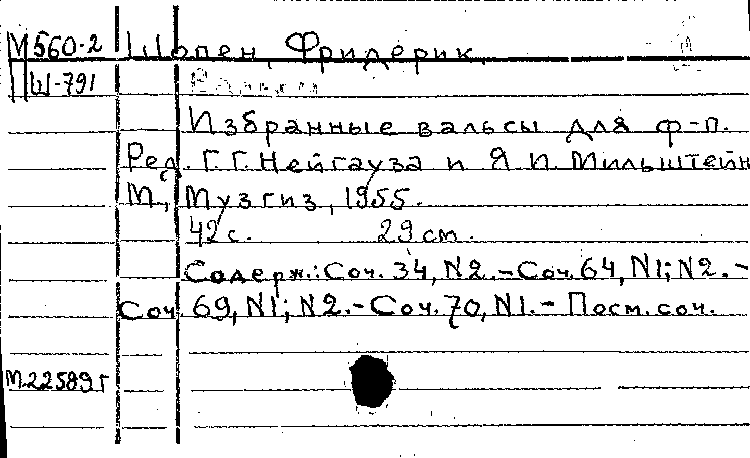 М560-2 Шопен, Фридерик.
Ш-791
Избранные вальсы для ф-п.
Ред. Г.Г.Нейгауза и Я.И.Мильштейн
М., Музгиз, 1955.
42с. 29cm.
Содерж.: Соч. 34, N2.-Соч.64, N1; N2.-
Соч. 69, N1; N2.-Соч.70, N1.- Посм. соч.
М22589г